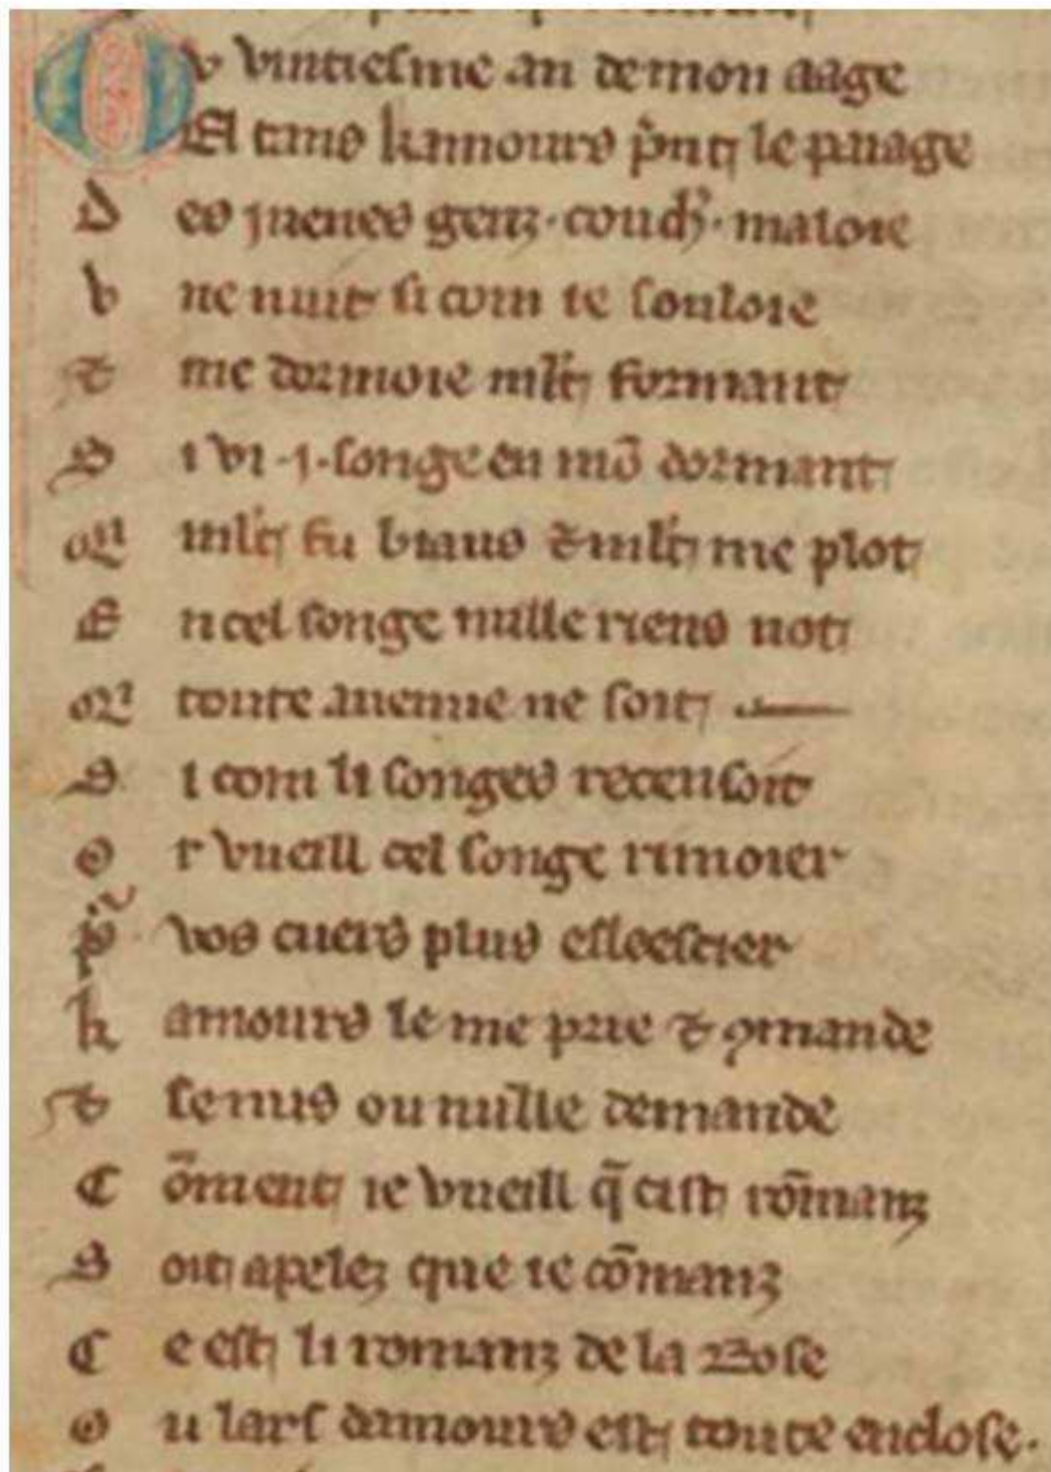 Ou vintiesme an de mon aage
El tans kamours p̾nt le paage
Des juenes genz · coucħ · maloie
Vne nuit si com ie souloie
Et me dormoie ml̃t forment
Si vi ·j· songe en mõ dormant
Ml̃t fu biaus ⁊ ml̃t me plot
En cel songe nulle riens not
toute auenue ne soit
Si com li songes recensoit
Or vueill cel songe rimoier
P̾ vos cuers plus esleescier
K amours le me prie ⁊ ꝯmande
Et se nus ou nulle demande
Cõment ie vueill q̃ cist rõmanz
Soit apelez que ie cõmanz
Ce est li romanz de la Rose
Ou lars damours est toute enclose·